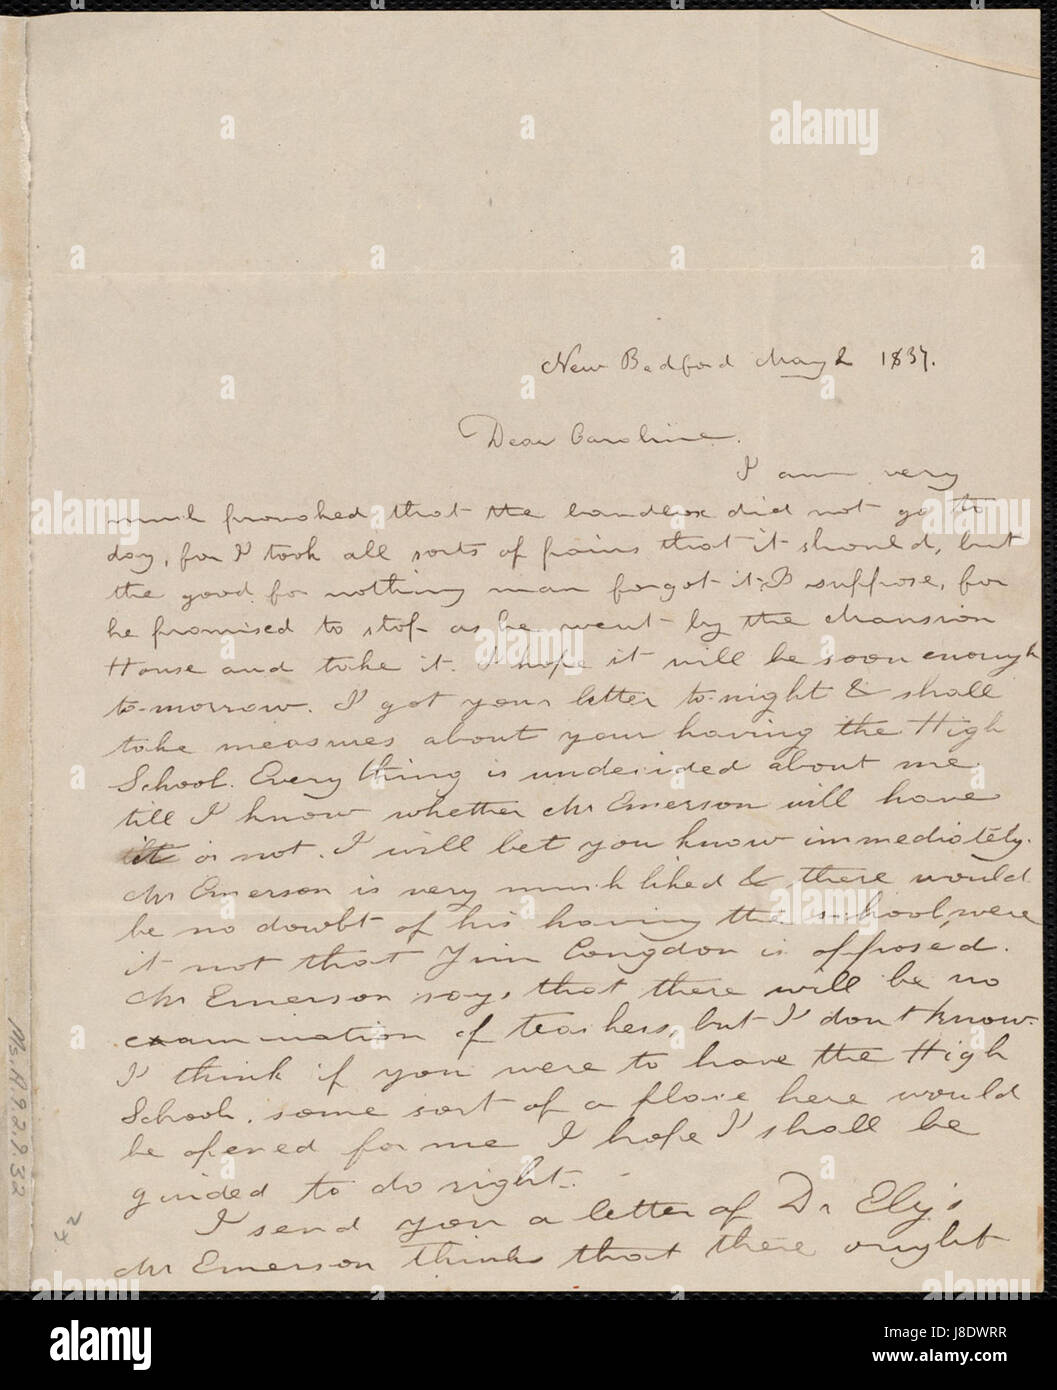 New Bedford May 2 1837.
Dear Caroline.
I am very
much provoked that the bandbox did not go to
day, for I took all sorts of pains that it should, but
the good for nothing man forgot it I suppose, for
he promised to stop as he went by the Mansion
House and take it. I hope it will be soon enough
to-morrow. I got your letter to-night & shall
take measures about your having the High
School. Every thing is undecided about me
till I know whether Mr Emerson will have
it or not. I will let you know immediately.
Mr Emerson is very much liked & there would
be no doubt of his having the school, were
it not that Jim Congdon is opposed.
Mr Emerson says that there will be no
examination of teachers, but I don't know.
I think if you were to have the High
School, some sort of a place here would
be opened for me I hope I shall be
guided to do right.
I send you a letter of Dr Ely's
Mr Emerson thinks that there ought
Ms.A.9.2.9.32
alamy
a
alamy
Image ID: J8DWRR
www.alamy.com